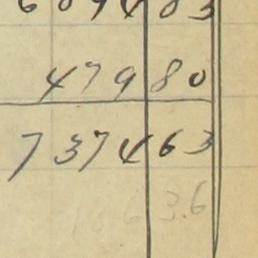 6894 83
479 80
7374 63